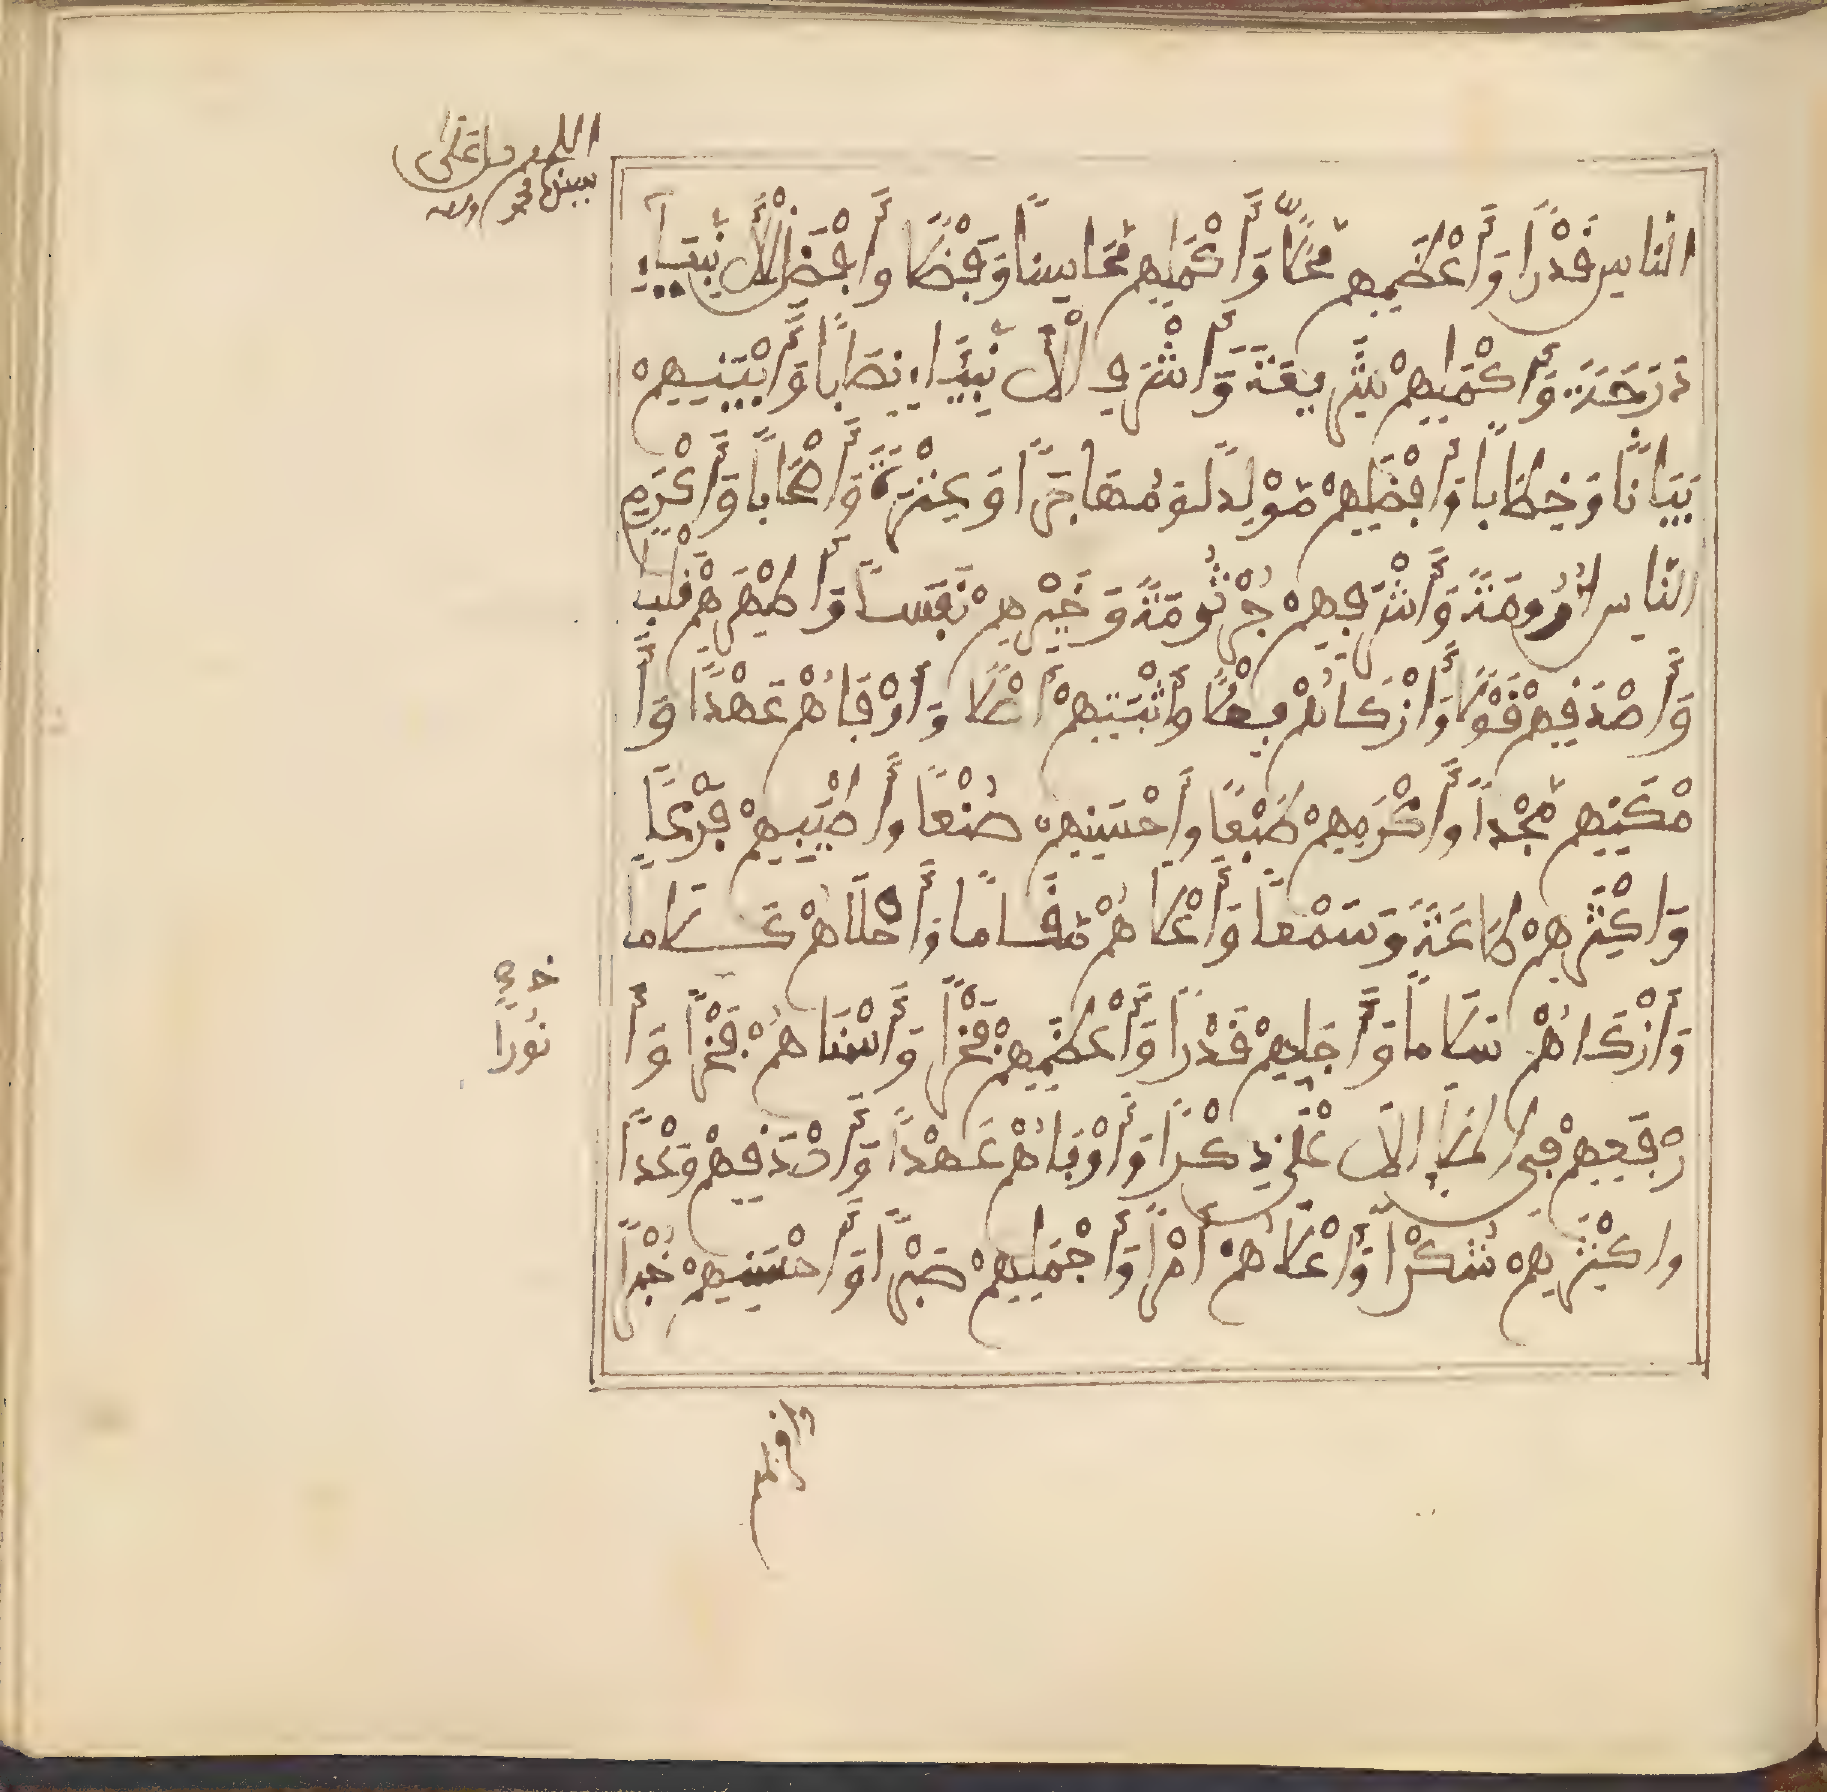 اللهم صل على
سيدنا محمد وآله
النَّاسِ قَدْرًا وَأَعْظَمِهِم مَّحَلًّا وَأَكْمَلِهِم مَّحَاسِنًا وَفَضْلًا وَأَفْضَلِ الْأَنْبِيَاءِ
دَرَجَةً وَأَكْمَلِهِمْ شَرِيعَةً وَأَشْرَفِ الْأَنْبِيَاءِ نِصَابًا وَأَبْيَنِهِمْ
بَيَانًا وَخِطَابًا وَأَفْضَلِهِمْ مَّوْلِدًا وَمُهَاجَرًا وَعِتْرَةً وَأَصْحَابًا وَأَكْرَمِ
النَّاسِ أُرُومَةً وَأَشْرَفِهِمْ جُرْثُومَةً وَخَيْرِهِمْ نَفْسًا وَأَطْهَرِهِمْ قَلْبًا
وَأَصْدَقِهِمْ قَوْلًا وَأَزْكَاهُمْ فِعْلًا وَأَثْبَتِهِمْ أَصْلًا وَأَوْفَاهُمْ عَهْدًا وَأَ
مْكَنِهِم مَّجْدًا وَأَكْرَمِهِمْ طَبْعًا وَأَحْسَنِهِمْ صُنْعًا وَأَطْيَبِهِمْ فَرْعًا
وَأَكْثَرِهِمْ طَاعَةً وَسَمْعًا وَأَعْلَاهُمْ مَّقَامًا وَأَحْلَاهُمْ كَلَامًا
وَأَزْكَاهُمْ سَلَامًا وَأَجَلِّهِمْ قَدْرًا وَأَعْظَمِهِمْ فَخْرًا وَأَسْنَاهُمْ فَخْرًا وَأَ
خ
نُورًا
رْفَعِهِمْ فِي الْمَلَإِ الْأَعْلَى ذِكْرًا وَأَوْفَاهُمْ عَهْدًا وَأَصْدَقِهِمْ وَعْدًا
وَأَكْثَرِهِمْ شُكْرًا وَأَعْلَاهُمْ أَمْرًا وَأَجْمَلِهِمْ صَبْرًا وَأَحْسَنِهِمْ خُبْرًا
وأقربهم